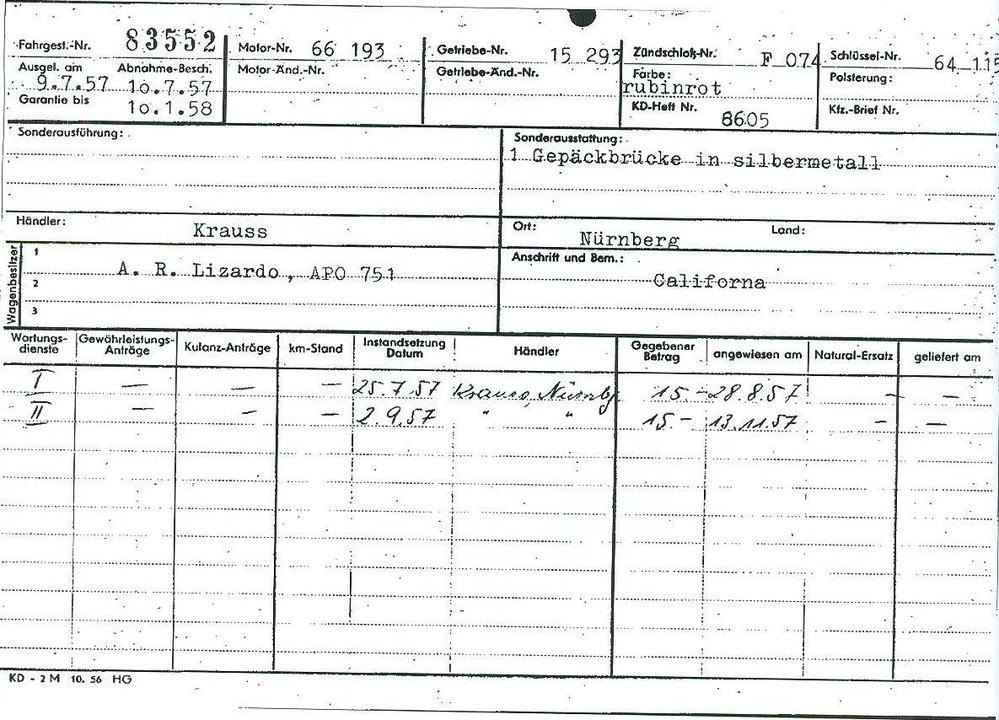 Fahrgest.-Nr. 83552 Motor-Nr. 66 193 Getriebe-Nr. 15 293 Zündschloß-Nr. F 074 Schlüssel-Nr. 64 115
Ausgel. am Abnahme-Besch. Motor-Änd.-Nr. Getriebe-Änd.-Nr. Farbe: Polsterung:
9.7.57 10.7.57 rubinrot
Garantie bis 10.1.58 KD-Heft Nr. 8605 Kfz.-Brief Nr.
Sonderausführung: Sonderausstattung:
1 Gepäckbrücke in silbermetall
Händler: Krauss Ort: Nürnberg Land:
Wagenbesitzer 1 Anschrift und Bem.:
A. R. Lizardo, APO 751
2 Californa
3
Wartungs-dienste Gewährleistungs-Anträge Kulanz-Anträge km-Stand Instandsetzung Datum Händler Gegebener Betrag angewiesen am Natural-Ersatz geliefert am
I — — — 25.7.57 Krauss, Nürnbg 15.- 28.8.57 — —
II — — — 2.9.57 " " 15.- 13.11.57 — —
KD - 2 M 10. 56 HG